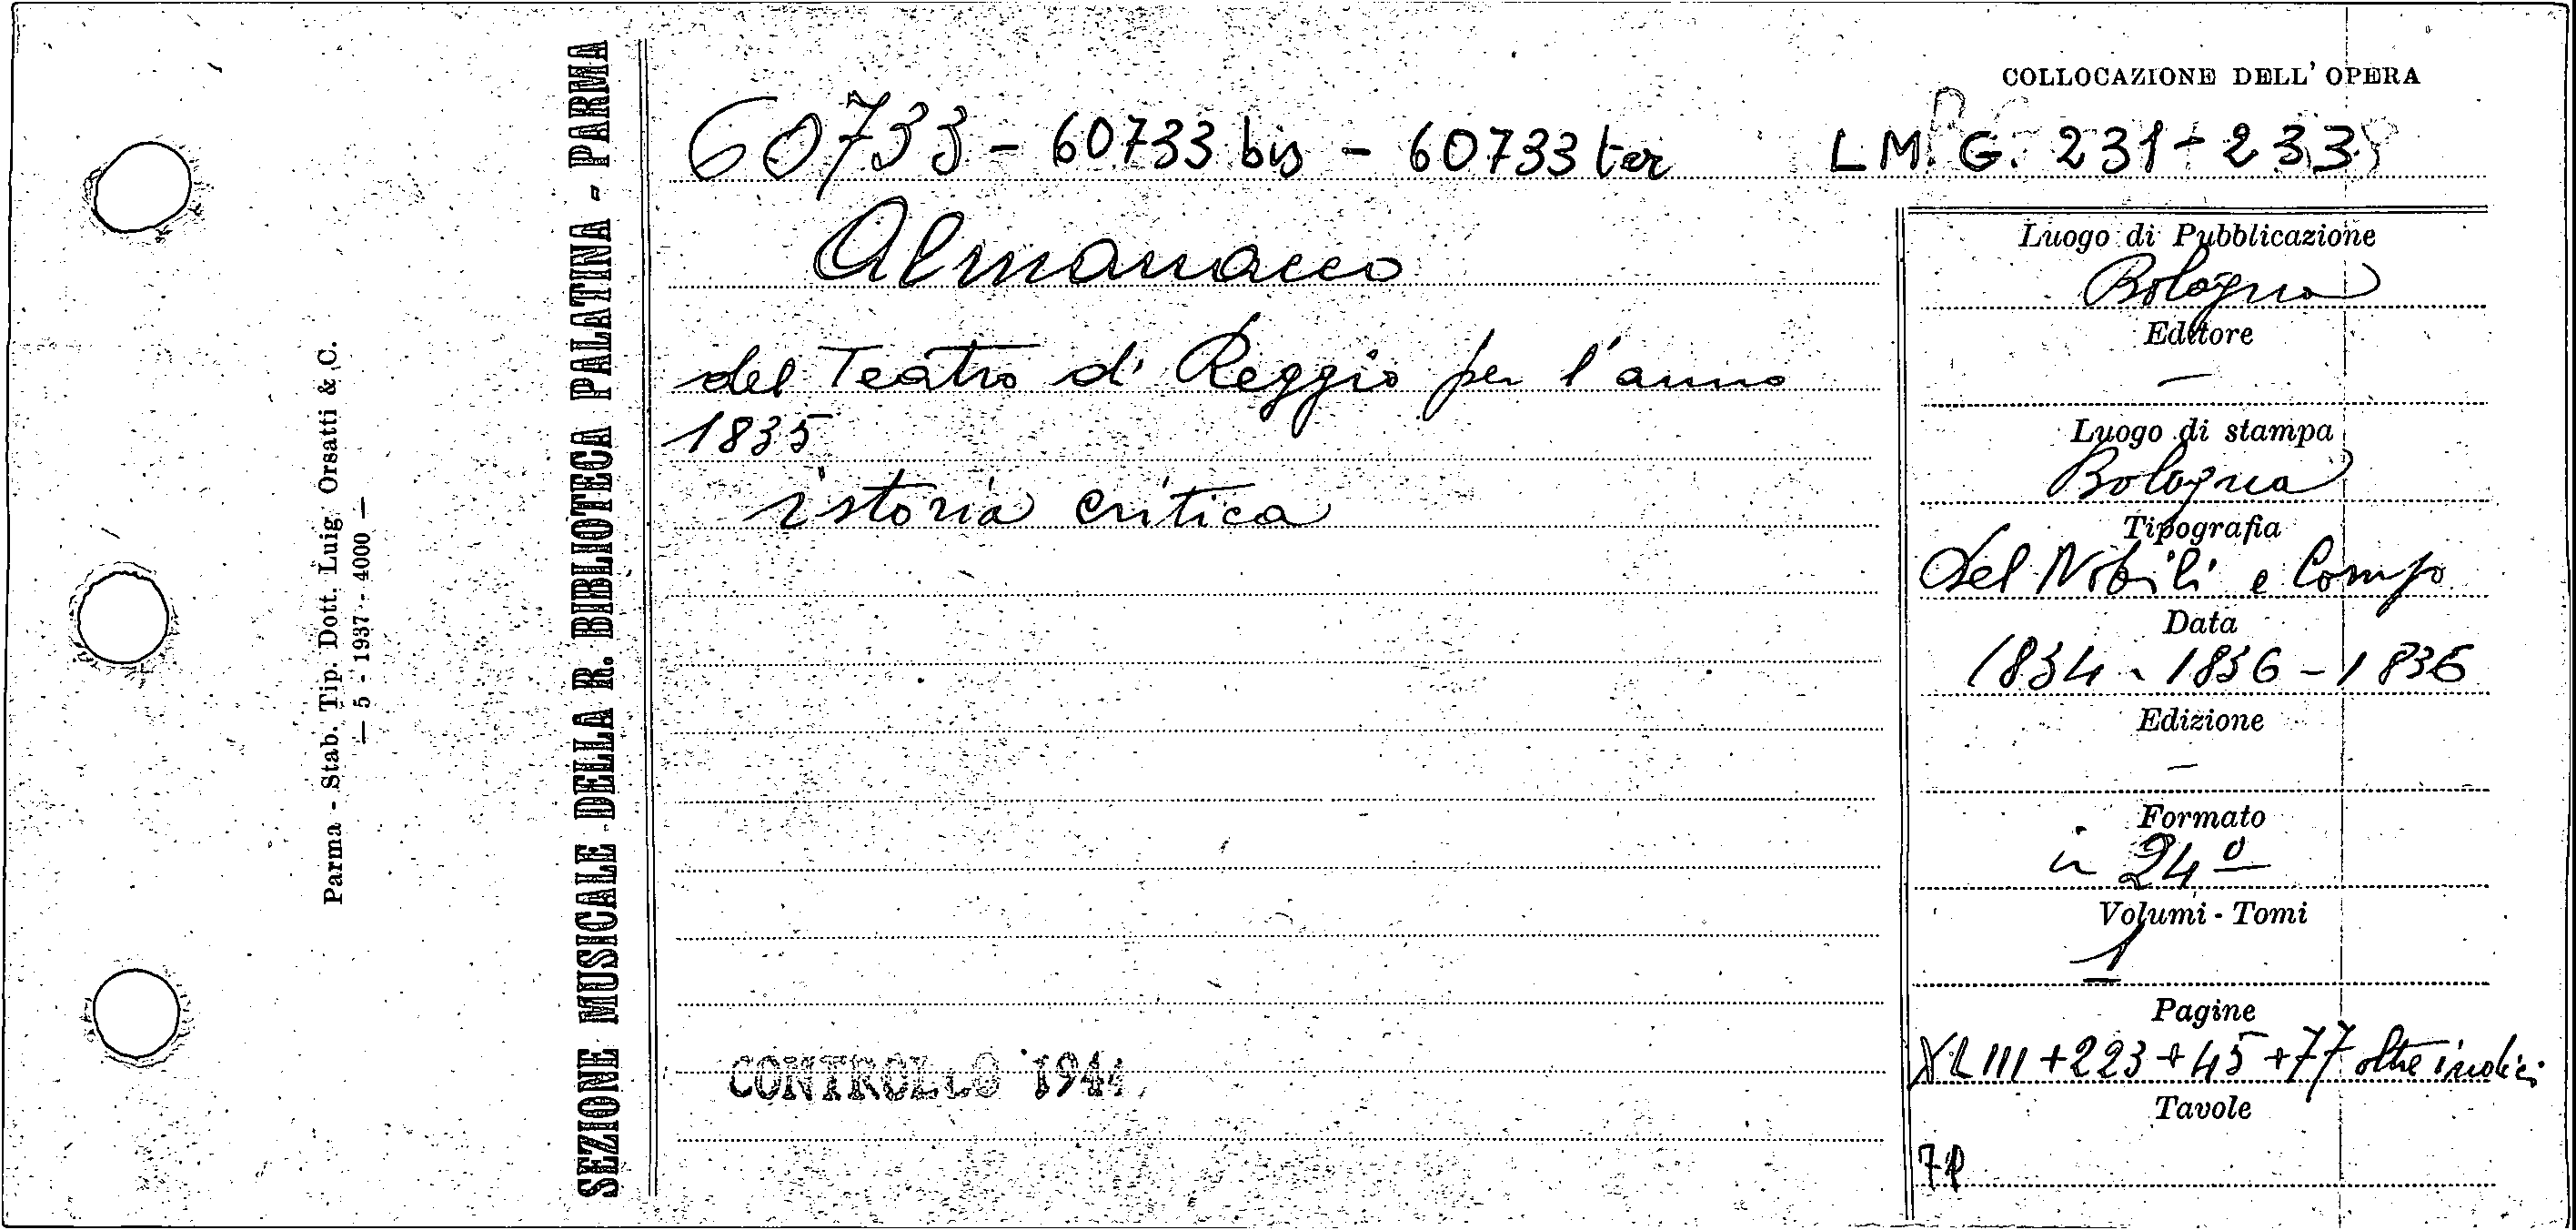 COLLOCAZIONE DELL' OPERA
60733 - 60733 bis - 60733 ter
L M. G. 231 - 233
Almanacco
del Teatro di Reggio per l'anno
1835
istoria critica
CONTROLLO 1944
Luogo di Pubblicazione
Bologna
Editore
—
Luogo di stampa
Bologna
Tipografia
del Nobili e Comp
Data
1834 - 1836 - 1836
Edizione
—
Formato
in 24º
Volumi - Tomi
1
Pagine
XLIII + 223 + 45 + 77 oltre indici
Tavole
SEZIONE MUSICALE DELLA R. BIBLIOTECA PALATINA - PARMA
Parma - Stab. Tip. Dott. Luig Orsatti & C.
— 5 - 1937 - 4000 —